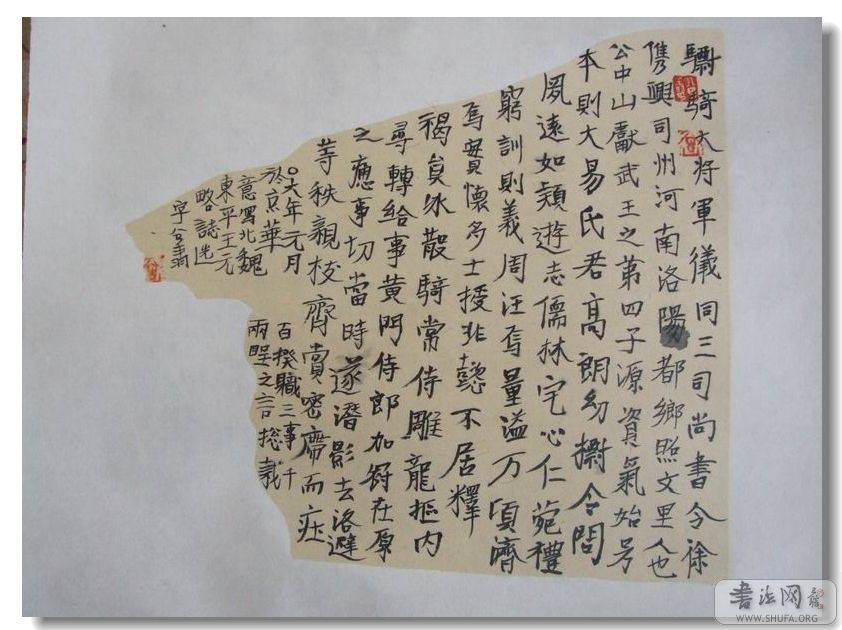 驃騎大將軍儀同三司尚書令徐
儁興司州河南洛陽都鄉照文里人也
公中山獻武王之第四子源資氣始号
本則大易氏君高朗幼挺令問
夙遠如穎遊志儒林宅心仁苑禮
窮訓則義周汪焉量溢万頃濟
焉實懷多士授非懿不居釋
褐員外散騎常侍雕龍抠内
尋轉給事黃門侍郎加尉在原
之應事切當時遂潛影去洛避
等秩親枝齊賞密席而庄
百揆職三事千
兩聖之言摠
〇六年元月
於京華
意寫北魏
東平王元
略誌選
书法网
WWW.SHUFA.ORG